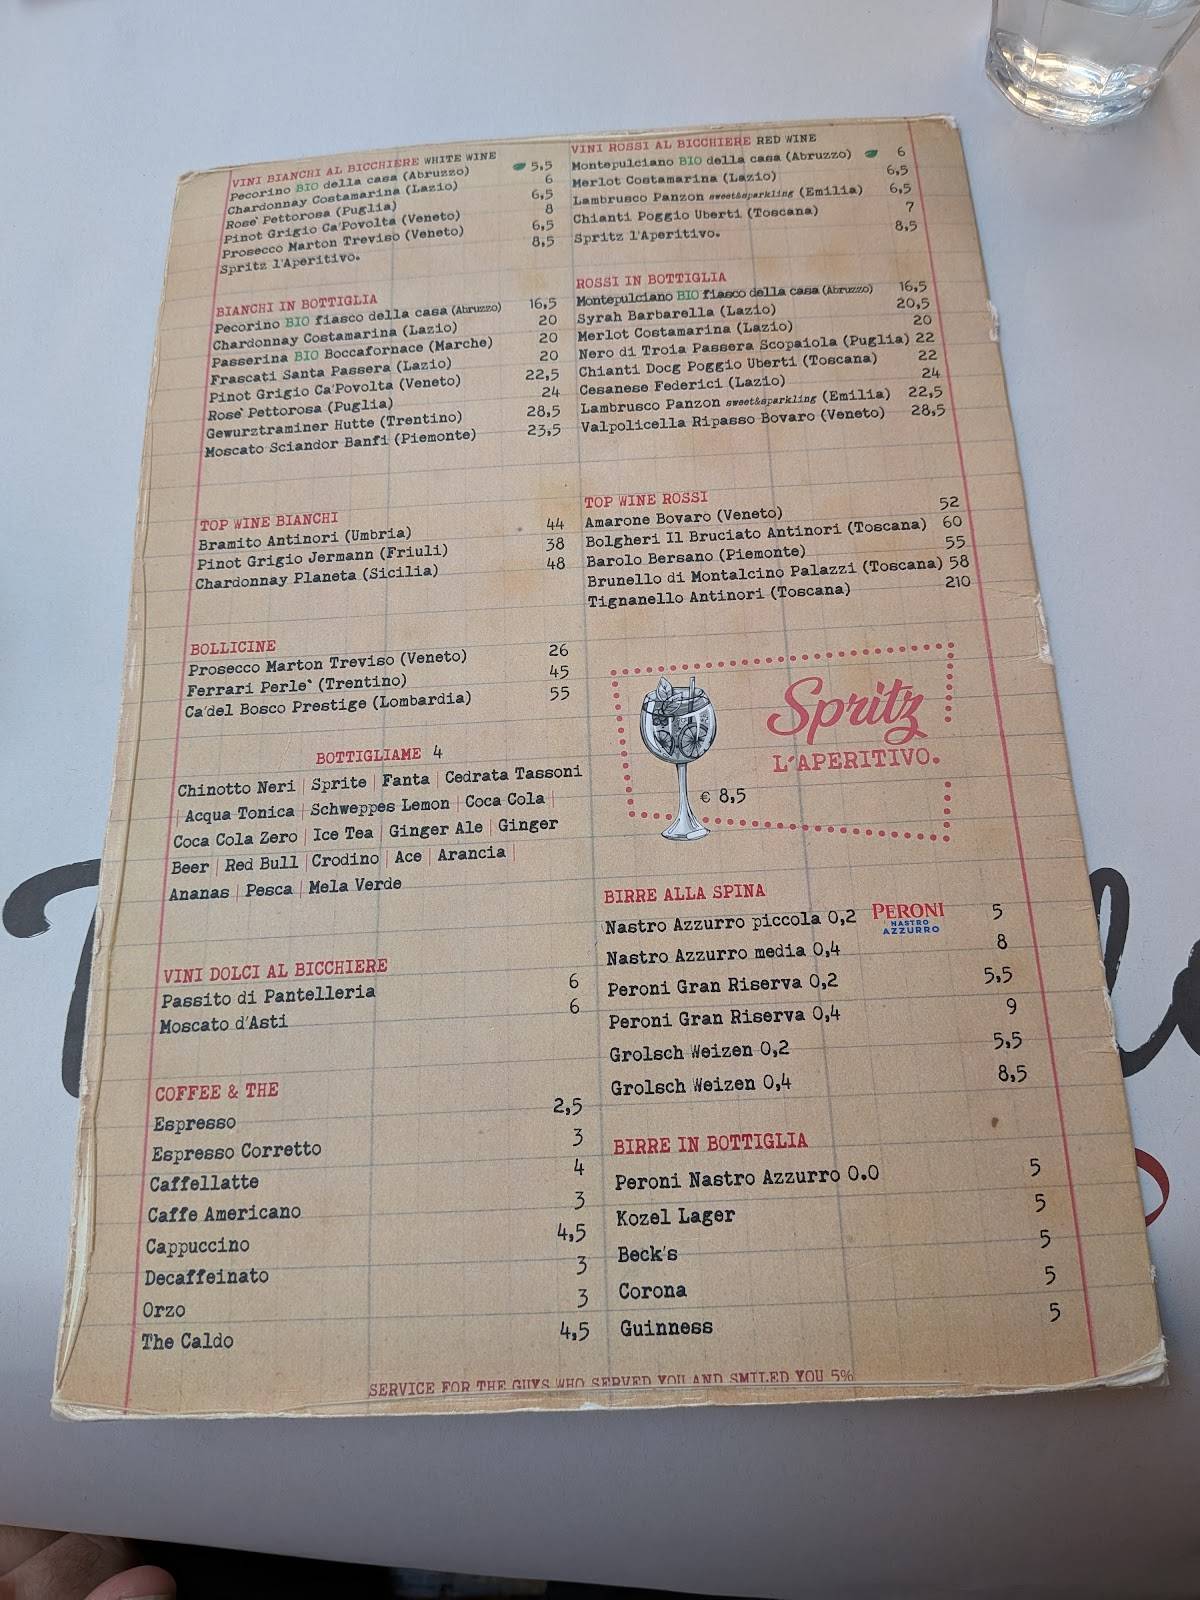 VINI BIANCHI AL BICCHIERE WHITE WINE
Pecorino BIO della casa (Abruzzo) 5,5
Chardonnay Costamarina (Lazio) 6
Rose' Pettorosa (Puglia) 6,5
Pinot Grigio Ca'Povolta (Veneto) 8
Prosecco Marton Treviso (Veneto) 6,5
Spritz l'Aperitivo. 8,5
BIANCHI IN BOTTIGLIA
Pecorino BIO fiasco della casa (Abruzzo) 16,5
Chardonnay Costamarina (Lazio) 20
Passerina BIO Boccafornace (Marche) 20
Frascati Santa Passera (Lazio) 20
Pinot Grigio Ca'Povolta (Veneto) 22,5
Rose' Pettorosa (Puglia) 24
Gewurztraminer Hutte (Trentino) 28,5
Moscato Sciandor Banfi (Piemonte) 23,5
TOP WINE BIANCHI
Bramito Antinori (Umbria) 44
Pinot Grigio Jermann (Friuli) 38
Chardonnay Planeta (Sicilia) 48
BOLLICINE
Prosecco Marton Treviso (Veneto) 26
Ferrari Perle' (Trentino) 45
Ca'del Bosco Prestige (Lombardia) 55
BOTTIGLIAME 4
Chinotto Neri | Sprite | Fanta | Cedrata Tassoni
| Acqua Tonica | Schweppes Lemon | Coca Cola |
Coca Cola Zero | Ice Tea | Ginger Ale | Ginger
Beer | Red Bull | Crodino | Ace | Arancia |
Ananas | Pesca | Mela Verde
VINI DOLCI AL BICCHIERE
Passito di Pantelleria 6
Moscato d'Asti 6
COFFEE & THE
Espresso 2,5
Espresso Corretto 3
Caffellatte 4
Caffe Americano 3
Cappuccino 4,5
Decaffeinato 3
Orzo 3
The Caldo 4,5
VINI ROSSI AL BICCHIERE RED WINE
Montepulciano BIO della casa (Abruzzo) 6
Merlot Costamarina (Lazio) 6,5
Lambrusco Panzon sweet&sparkling (Emilia) 6,5
Chianti Poggio Uberti (Toscana) 7
Spritz l'Aperitivo. 8,5
ROSSI IN BOTTIGLIA
Montepulciano BIO fiasco della casa (Abruzzo) 16,5
Syrah Barbarella (Lazio) 20,5
Merlot Costamarina (Lazio) 20
Nero di Troia Passera Scopaiola (Puglia) 22
Chianti Docg Poggio Uberti (Toscana) 22
Cesanese Federici (Lazio) 24
Lambrusco Panzon sweet&sparkling (Emilia) 22,5
Valpolicella Ripasso Bovaro (Veneto) 28,5
TOP WINE ROSSI
Amarone Bovaro (Veneto) 52
Bolgheri Il Bruciato Antinori (Toscana) 60
Barolo Bersano (Piemonte) 55
Brunello di Montalcino Palazzi (Toscana) 58
Tignanello Antinori (Toscana) 210
Spritz
L'APERITIVO.
€ 8,5
BIRRE ALLA SPINA
Nastro Azzurro piccola 0,2 PERONI 5
NASTRO
AZZURRO
Nastro Azzurro media 0,4 8
Peroni Gran Riserva 0,2 5,5
Peroni Gran Riserva 0,4 9
Grolsch Weizen 0,2 5,5
Grolsch Weizen 0,4 8,5
BIRRE IN BOTTIGLIA
Peroni Nastro Azzurro 0.0 5
Kozel Lager 5
Beck's 5
Corona 5
Guinness 5
SERVICE FOR THE GUYS WHO SERVED YOU AND SMILED YOU 5%